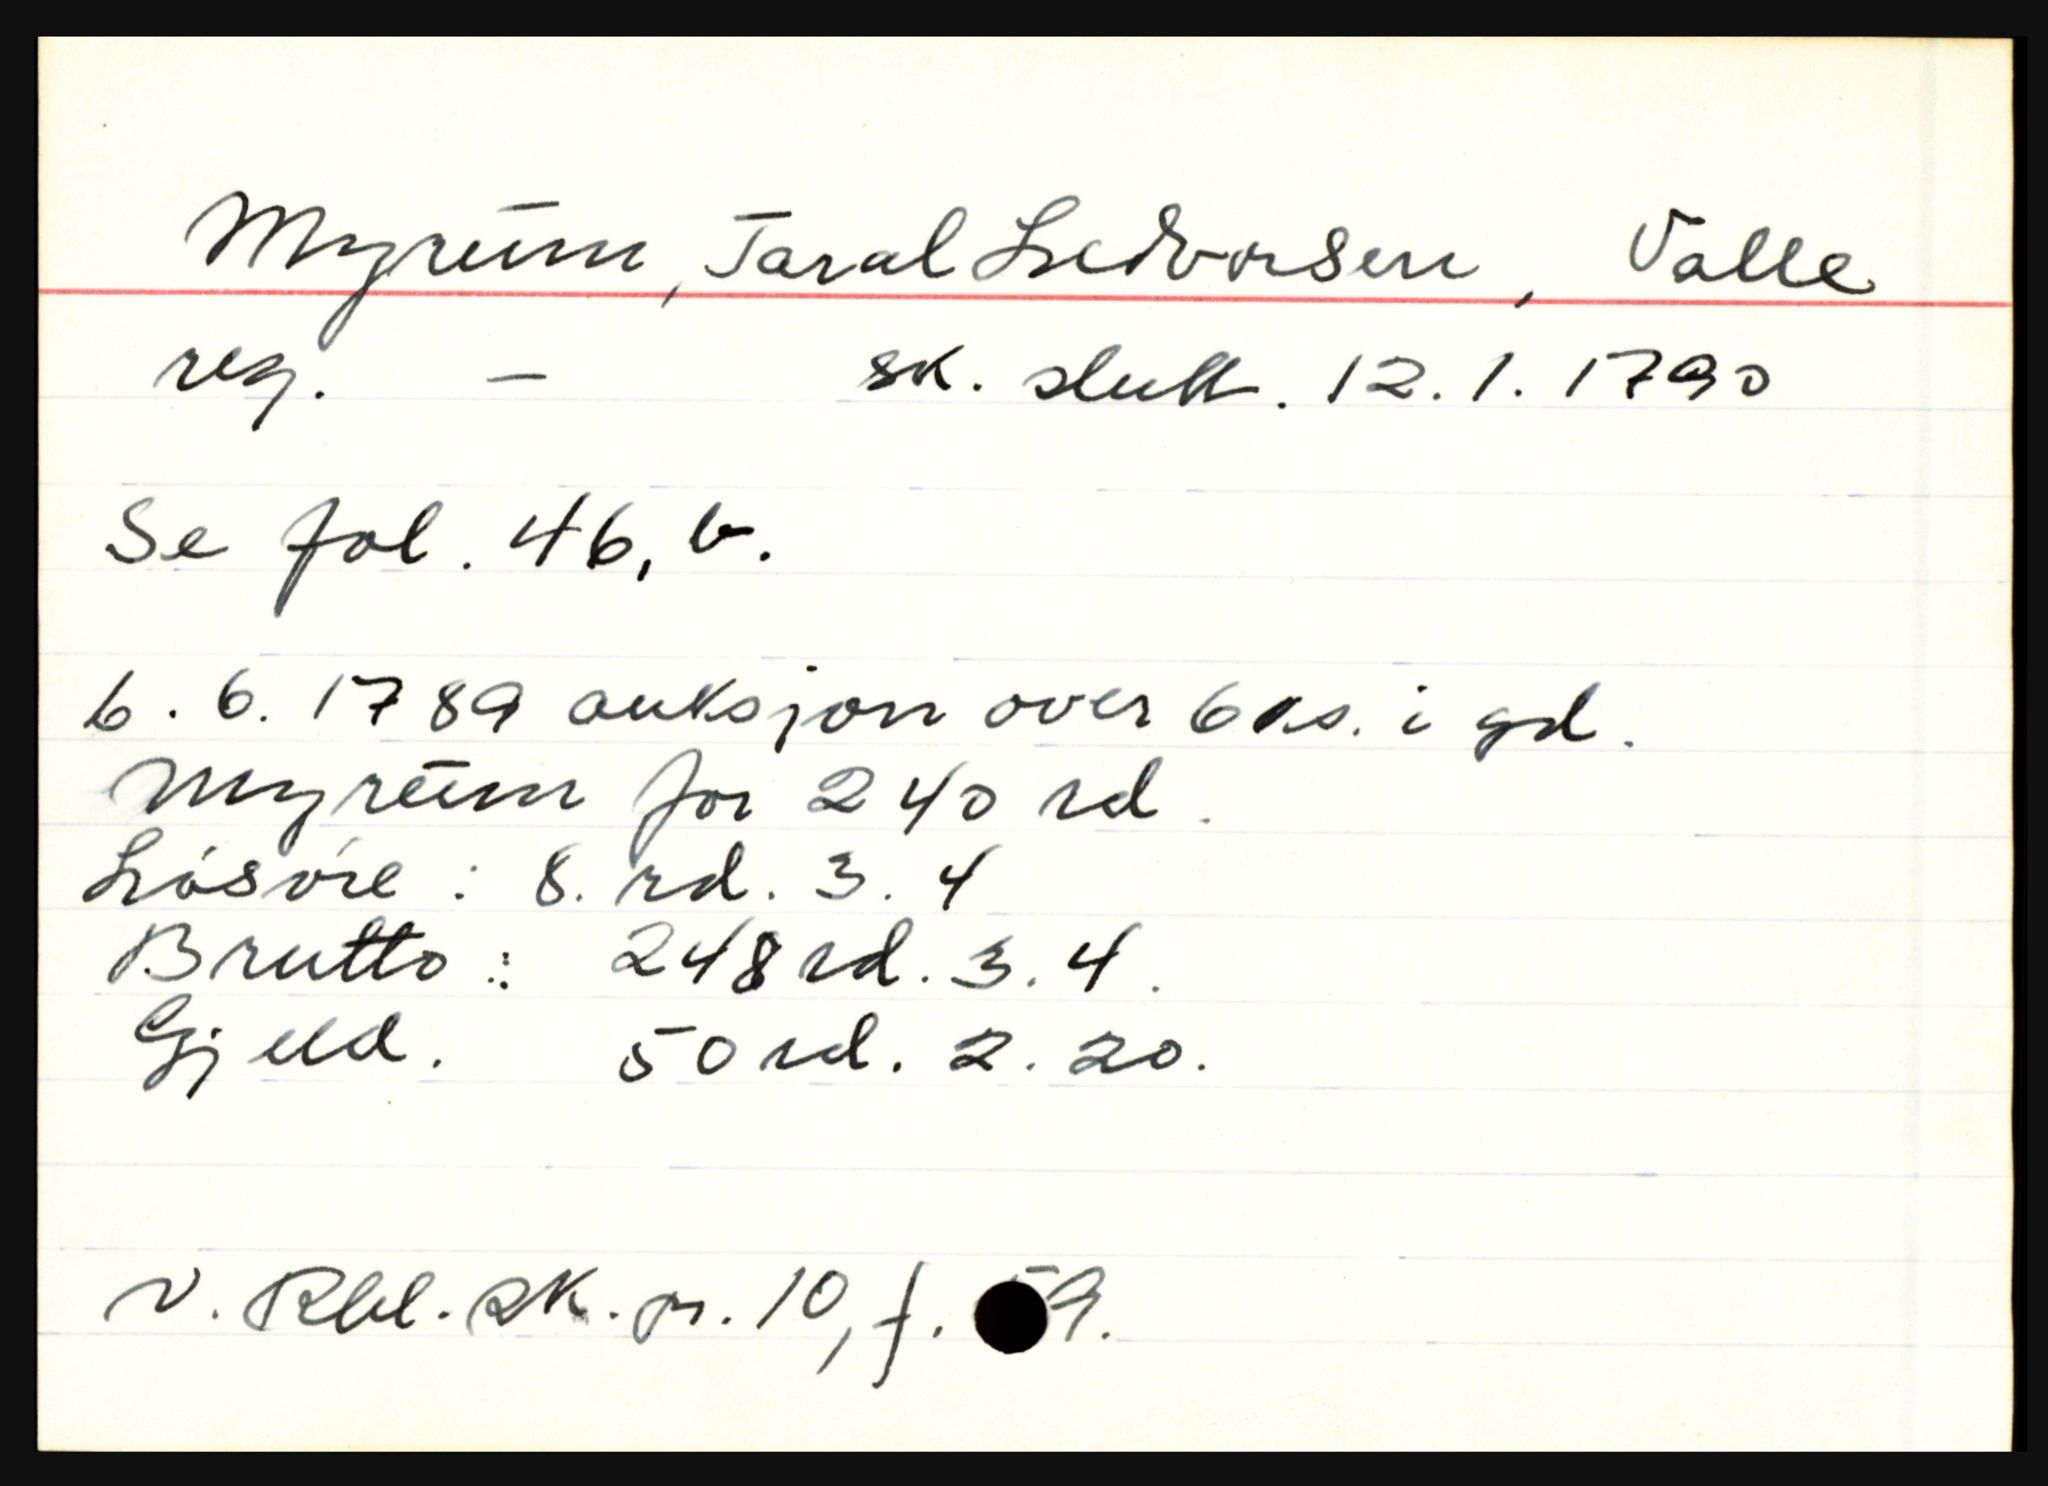 Myrum, Taral Ledvorsen, Valle
reg. — sk. slutt. 12.1.1790
Se fol. 46, b.
6.6.1789 auksjon over 6 ks. i gd.
Myrum for 240 rd.
Lösöre : 8. rd. 3. 4
Brutto : 248 rd. 3. 4.
Gjeld. 50 rd. 2. 20.
N. Rbl. sk. pr. 10, f. 59.